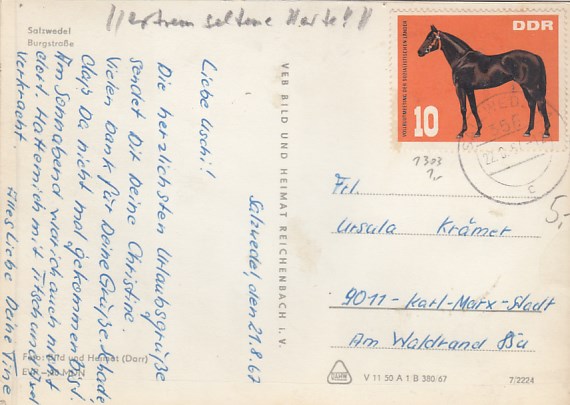 !! extrem seltene Karte!! !!
Salzwedel
Burgstraße
Salzwedel, den 21.8.67
Liebe Uschi!
Die herzlichsten Urlaubsgrüße
sendet Dir Deine Christine.
Vielen Dank für Deine Grüße. Schade,
daß Du nicht mal gekommen bist.
Am Sonnabend war ich auch nicht
dort. Hatte mich mit
verkracht.
Alles Liebe Deine Tine
Foto: Bild und Heimat (Darr)
EVP -,20 MDN
VEB BILD UND HEIMAT REICHENBACH I. V.
DDR
VOLLBLUTMEETING DER SOZIALISTISCHEN LÄNDER
10
c
1303
5,-
Frl.
Ursula Krämer
9011 - Karl-Marx-Stadt
Am Waldrand 85a
V 11 50 A 1 B 380/67
7/2224